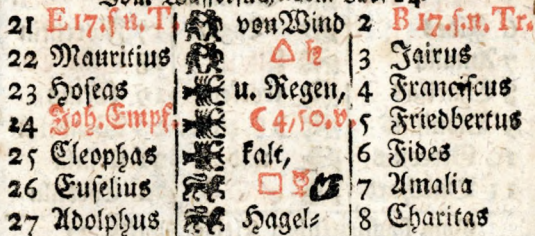 21 E 17. s. n. T. von Wind 2 B 17. s. n. Tr.
22 Mauritius △ ♄ 3 Jairus
23 Hoseas u. Regen, 4 Franciscus
24 Joh. Empf. ☾ 4/50. v. 5 Friedbertus
25 Cleophas kalt, 6 Fides
26 Euselius □ ☿ 7 Amalia
27 Adolphus Hagel⸗ 8 Charitas